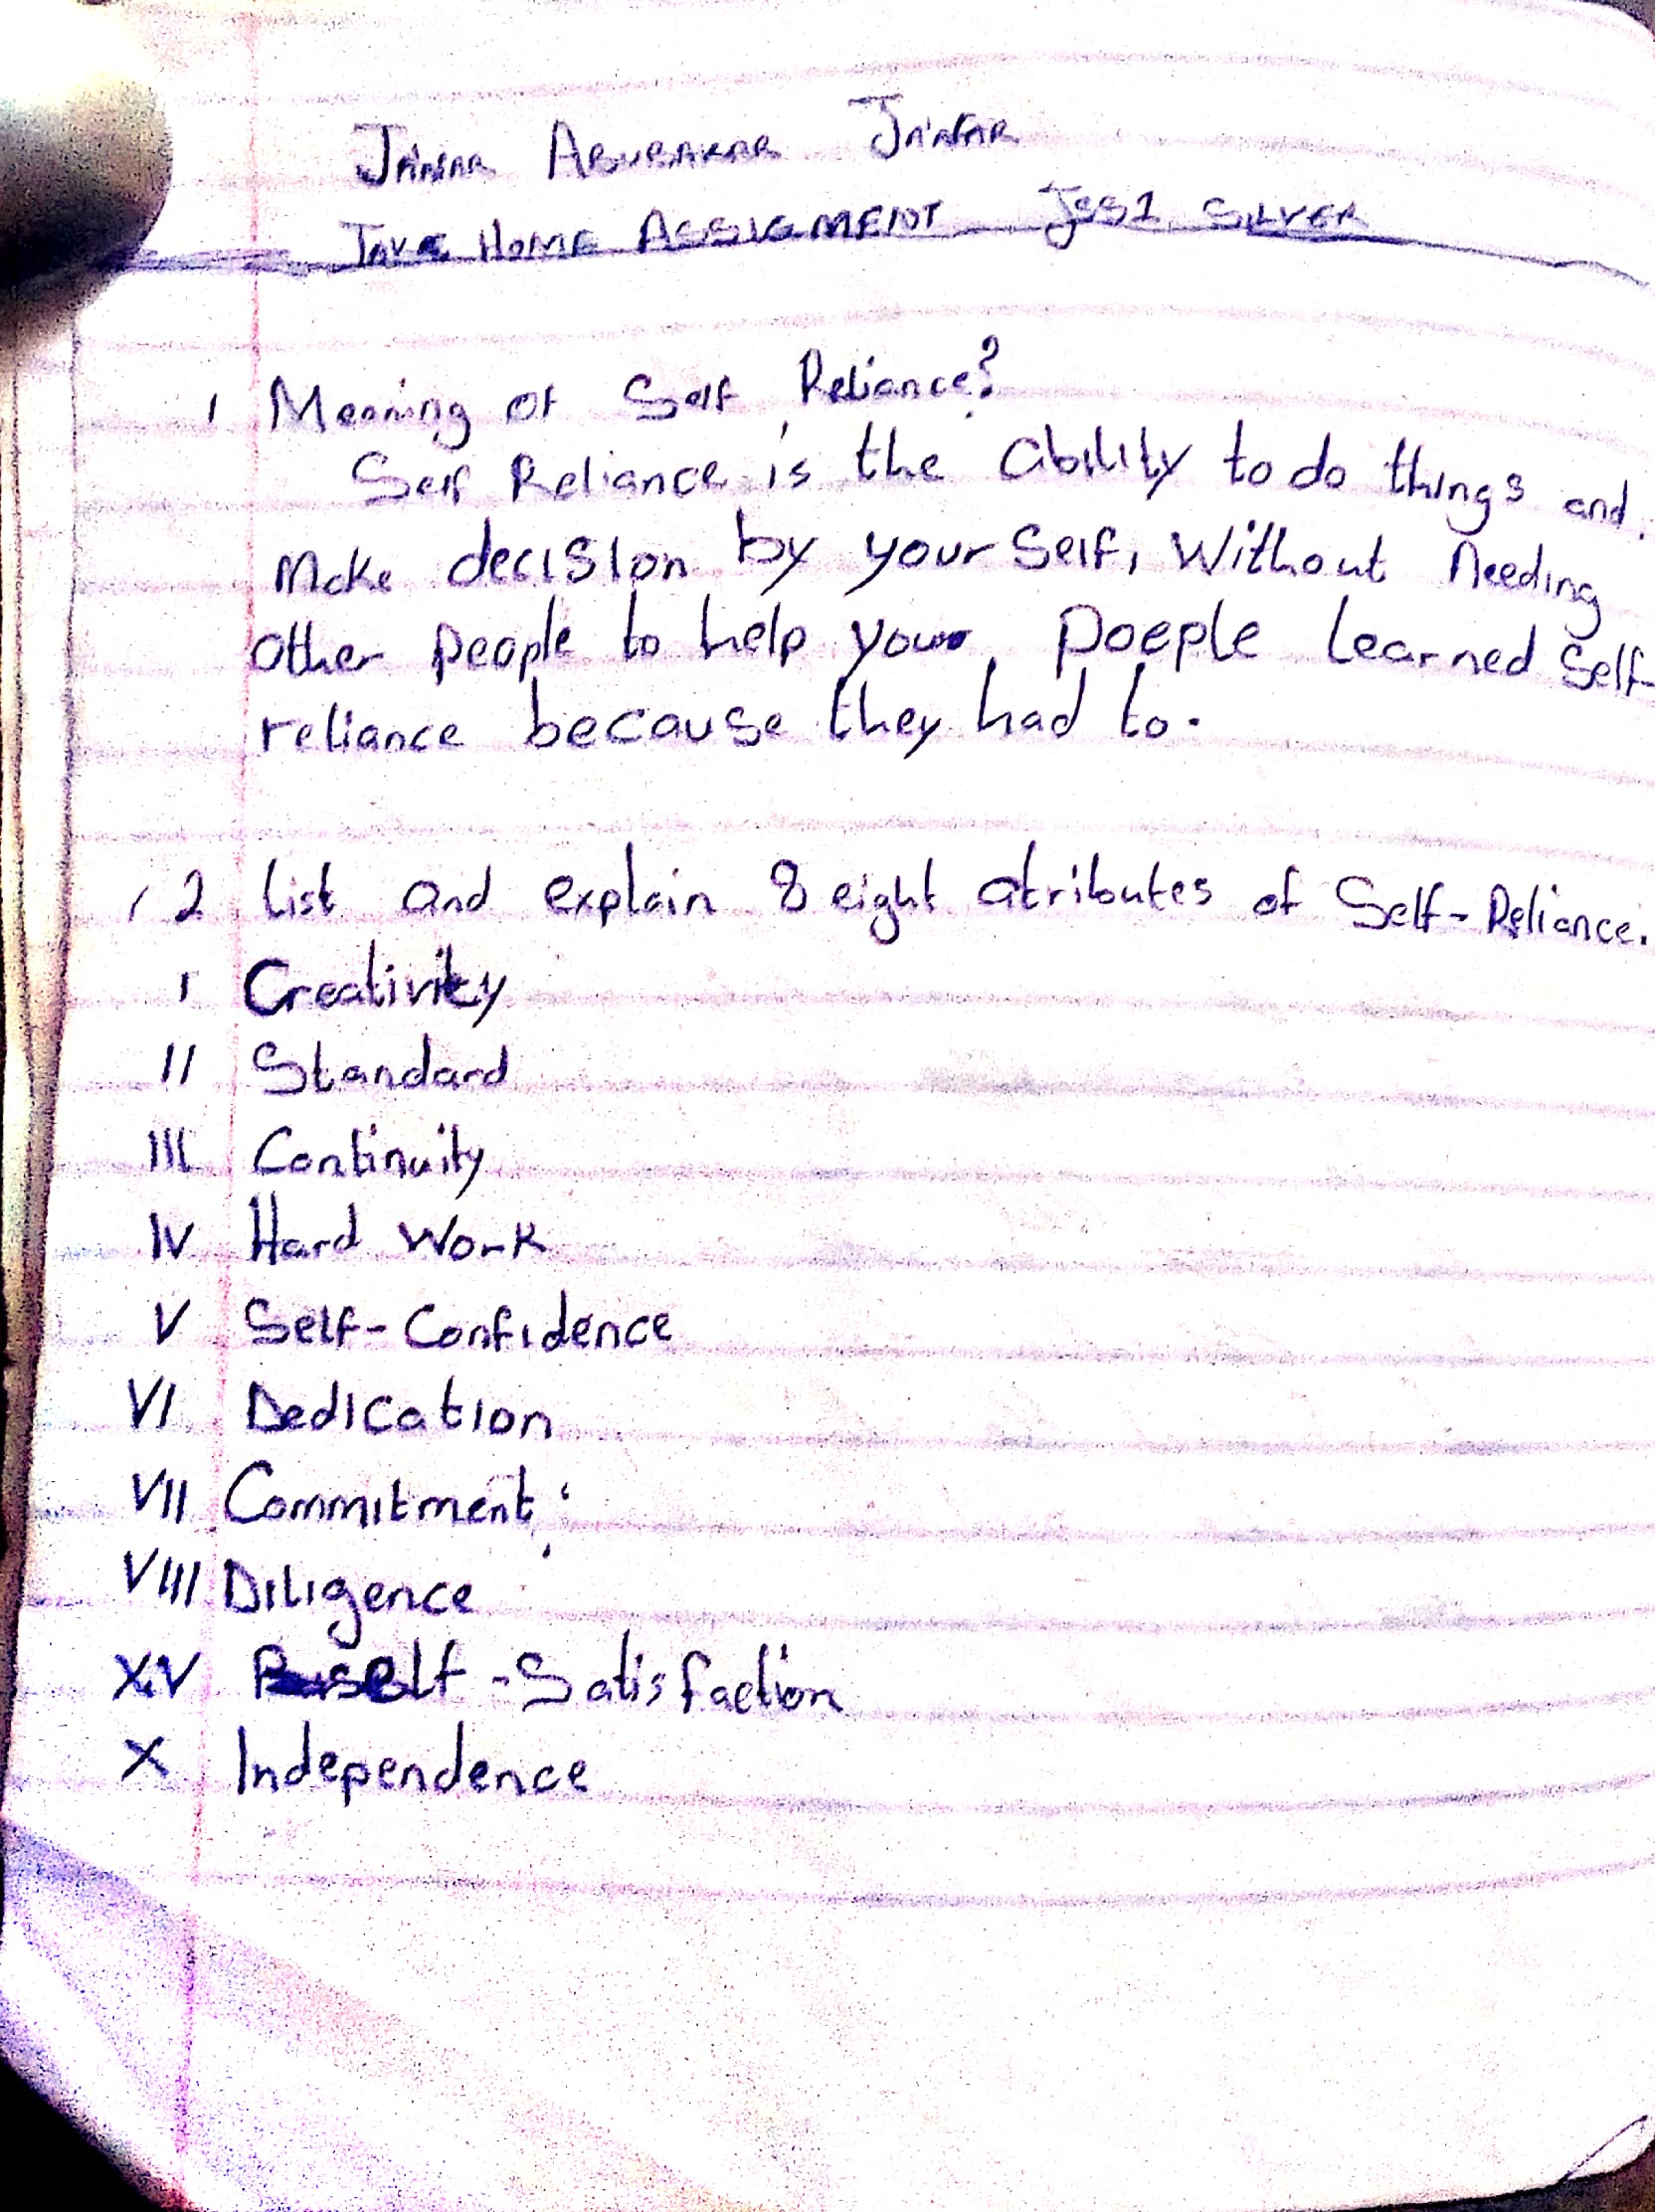 Ja'afar Abubakar Ja'afar
Take Home Assigment Jss1 Silver
1 Meaning of Self Reliance?
Self Reliance is the ability to do things and
Make decision by your self, Without Needing
other people to help you, poeple learned self-
reliance because they had to.
2 list and explain 8 eight atributes of Self-Reliance.
I Creativity
II Standard
III Continuity
IV Hard Work
V Self-Confidence
VI Dedication
VII Commitment
VIII Diligence
XV self-Satisfaction
X Independence